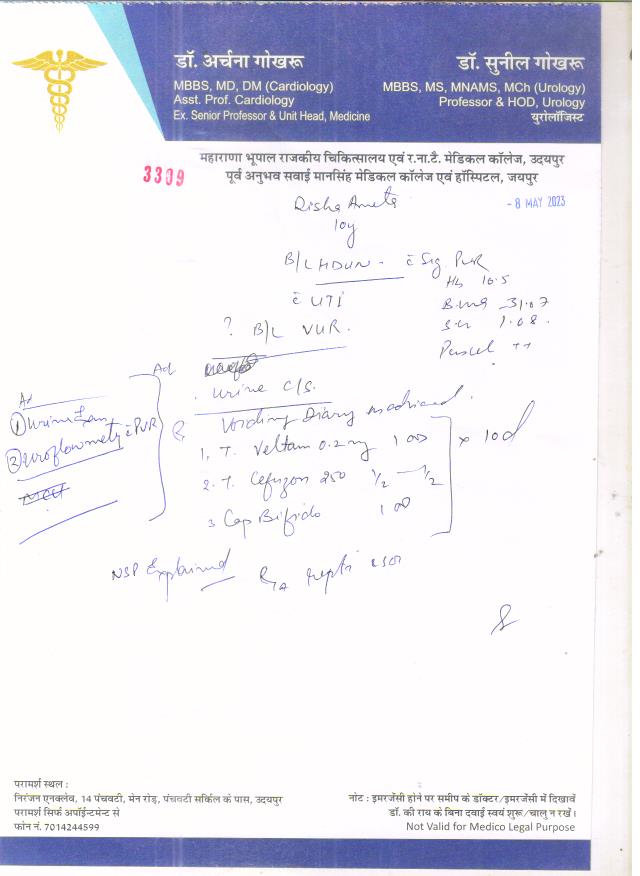 डॉ. अर्चना गोखरू
MBBS, MD, DM (Cardiology)
Asst. Prof. Cardiology
Ex. Senior Professor & Unit Head, Medicine
डॉ. सुनील गोखरू
MBBS, MS, MNAMS, MCh (Urology)
Professor & HOD, Urology
युरोलॉजिस्ट
महाराणा भूपाल राजकीय चिकित्सालय एवं र.ना.टै. मेडिकल कॉलेज, उदयपुर
पूर्व अनुभव सवाई मानसिंह मेडिकल कॉलेज एवं हॉस्पिटल, जयपुर
3309
- 8 MAY 2023
10y
B/L HDUN - c̄ Sig. PVR
Hb 10.5
c̄ UTI
? B/L VUR.
1.08.
Ad
Urine c/s.
Ad
Voiding Diary
② Uroflowmetry c̄ PVR
1. T. Veltam 0.2 mg 1 OD
2. T. 250 1/2 — 1/2
x 10d
3 Cap Bifido 1 OD
NSP Explained
परामर्श स्थल :
निरंजन एनक्लेव, 14 पंचवटी, मेन रोड़, पंचवटी सर्किल के पास, उदयपुर
परामर्श सिर्फ अपॉईन्टमेन्ट से
फोन नं. 7014244599
नोट : इमरजेंसी होने पर समीप के डॉक्टर/इमरजेंसी में दिखावें
डॉ. की राय के बिना दवाई स्वयं शुरू/चालु न रखें।
Not Valid for Medico Legal Purpose